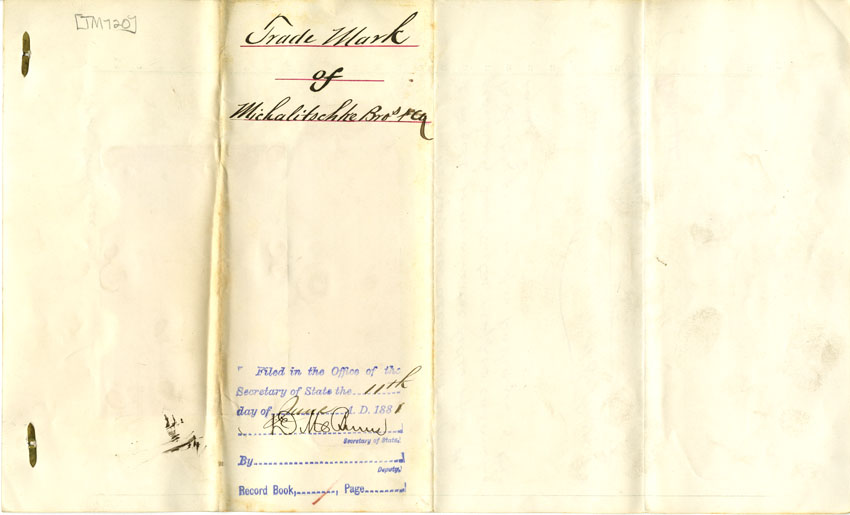 [TM720]
Trade Mark
of
Michalitschke Bros & Co
Filed in the Office of the
Secretary of State the 11th
day of June A. D. 1881
Secretary of State.
By
Deputy.
Record Book, , Page